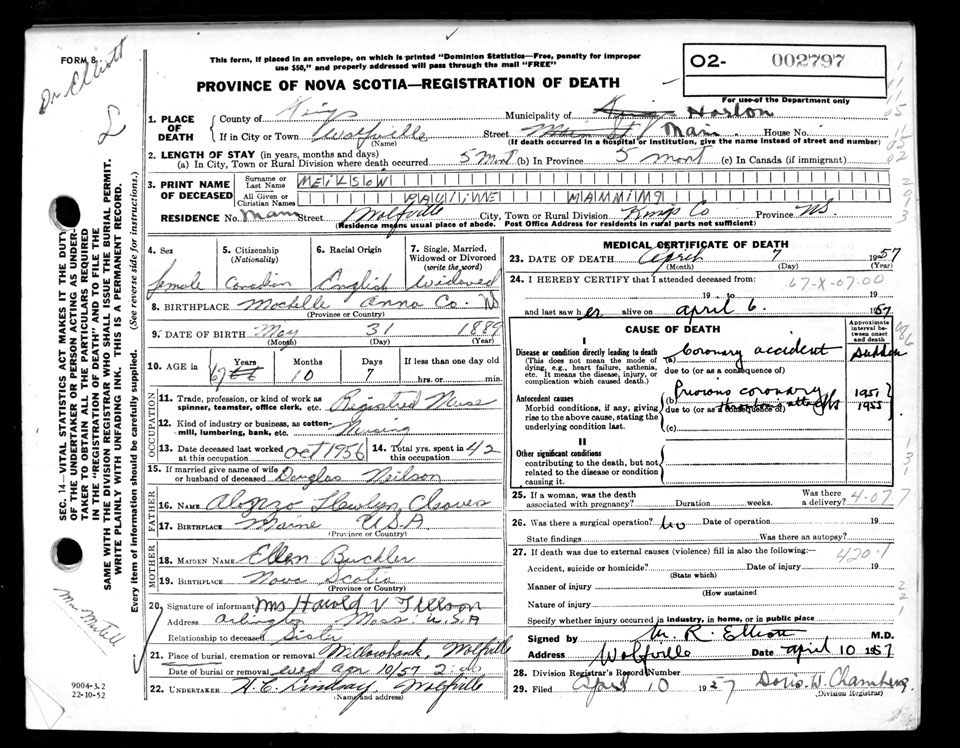 FORM 8
Dr Elliott
This form, if placed in an envelope, on which is printed "Dominion Statistics—Free, penalty for improper
use $50," and properly addressed will pass through the mail "FREE"
PROVINCE OF NOVA SCOTIA—REGISTRATION OF DEATH
O2- 002797
For use of the Department only
1. PLACE OF DEATH
County of Kings Municipality of Horton
If in City or Town Wolfville Street Main House No.
(Name) (If death occurred in a hospital or institution, give the name instead of street and number)
2. LENGTH OF STAY (in years, months and days)
(a) In City, Town or Rural Division where death occurred 5 Mont (b) In Province 5 mont (c) In Canada (if immigrant)
3. PRINT NAME OF DECEASED
Surname or Last Name
All Given or Christian Names PAULINE MANNING
RESIDENCE No. Main Street Wolfville City, Town or Rural Division Kings Co Province NS.
(Residence means usual place of abode. Post Office Address for residents in rural parts not sufficient)
4. Sex female
5. Citizenship (Nationality) Canadian
6. Racial Origin English
7. Single, Married, Widowed or Divorced (write the word) Widowed
8. BIRTHPLACE Mochelle Anna Co. NS
(Province or County)
9. DATE OF BIRTH May 31 1889
(Month) (Day) (Year)
10. AGE in 67 Years 10 Months 7 Days If less than one day old
hrs. or min.
OCCUPATION
11. Trade, profession, or kind of work as
spinner, teamster, office clerk, etc. Registred Nurse
12. Kind of industry or business, as cotton-
mill, lumbering, bank, etc. Nursing
13. Date deceased last worked at this occupation Oct 1956
14. Total yrs. spent in this occupation 42
15. If married give name of wife
or husband of deceased Douglas Neilson
FATHER
16. NAME Alonzo Llewlyn Cleaves
17. BIRTHPLACE Maine U.S.A
(Province or County)
MOTHER
18. MAIDEN NAME Ellen Buckler
19. BIRTHPLACE Nova Scotia
(Province or County)
20. Signature of informant Mrs Harold V Tillson
Address Arlington Mass. U.S.A
Relationship to deceased Sister
21. Place of burial, cremation or removal Willowbank, Wolfville
Date of burial or removal Wed Apr 10/57 2:00
22. UNDERTAKER H.C. Lindsay, Wolfville
(NAME AND ADDRESS)
MEDICAL CERTIFICATE OF DEATH
23. DATE OF DEATH April 7 1957
(Month) (Day) (Year)
24. I HEREBY CERTIFY that I attended deceased from:
67-X-07.00
19 to 19
and last saw her alive on April 6. 1957
CAUSE OF DEATH
Approximate interval between onset and death
I
Disease or condition directly leading to death
(This does not mean the mode of
dying, e.g., heart failure, asthenia,
etc. It means the disease, injury, or
complication which caused death.)
(a) Coronary accident sudden
due to (or as a consequence of)
Antecedent causes
Morbid conditions, if any, giving
rise to the above cause, stating the
underlying condition last.
(b) Previous coronary 1951
due to (or as a consequence of) attacks 1955
(c)
II
Other significant conditions
contributing to the death, but not
related to the disease or condition
causing it.
25. If a woman, was the death
associated with pregnancy? Duration weeks. Was there a delivery? 4-07.7
26. Was there a surgical operation? No Date of operation 19
State findings Was there an autopsy?
27. If death was due to external causes (violence) fill in also the following:— 420.1
Accident, suicide or homicide? Date of injury 19
(State which)
Manner of injury
(How sustained
Nature of injury
Specify whether injury occurred in industry, in home, or in public place
Signed by M. R. Elliott M.D.
Address Wolfville Date April 10 1957
28. Division Registrar's Record Number
29. Filed April 10 1957 Doris W. Chambers
(Division Registrar)
SEC. 14—VITAL STATISTICS ACT MAKES IT THE DUTY
OF THE UNDERTAKER OR PERSON ACTING AS UNDER-
TAKER TO OBTAIN ALL THE PARTICULARS REQUIRED
IN THE "REGISTRATION OF DEATH" AND TO FILE THE
SAME WITH THE DIVISION REGISTRAR WHO SHALL ISSUE THE BURIAL PERMIT.
WRITE PLAINLY WITH UNFADING INK. THIS IS A PERMANENT RECORD.
Every item of information should be carefully supplied. (See reverse side for instructions.)
9004-3.2
22-10-52